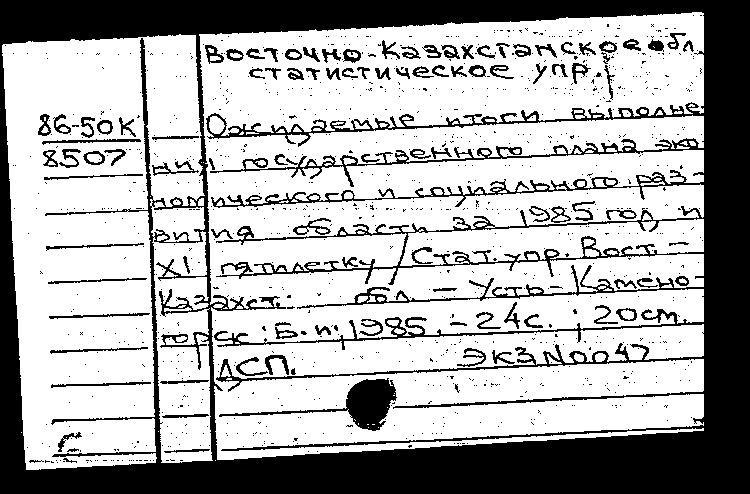 Восточно-Казахстанское обл.
статистическое упр.
86-50К
8507
Ожидаемые итоги выполне-
ния государственного плана эко
номического и социального раз-
вития области за 1985 год и
XI пятилетку / Стат. упр. Вост. -
Казахст. обл. - Усть-Камено-
горск : Б. и., 1985. - 24с. ; 20см.
ДСП. ЭКЗ N0047